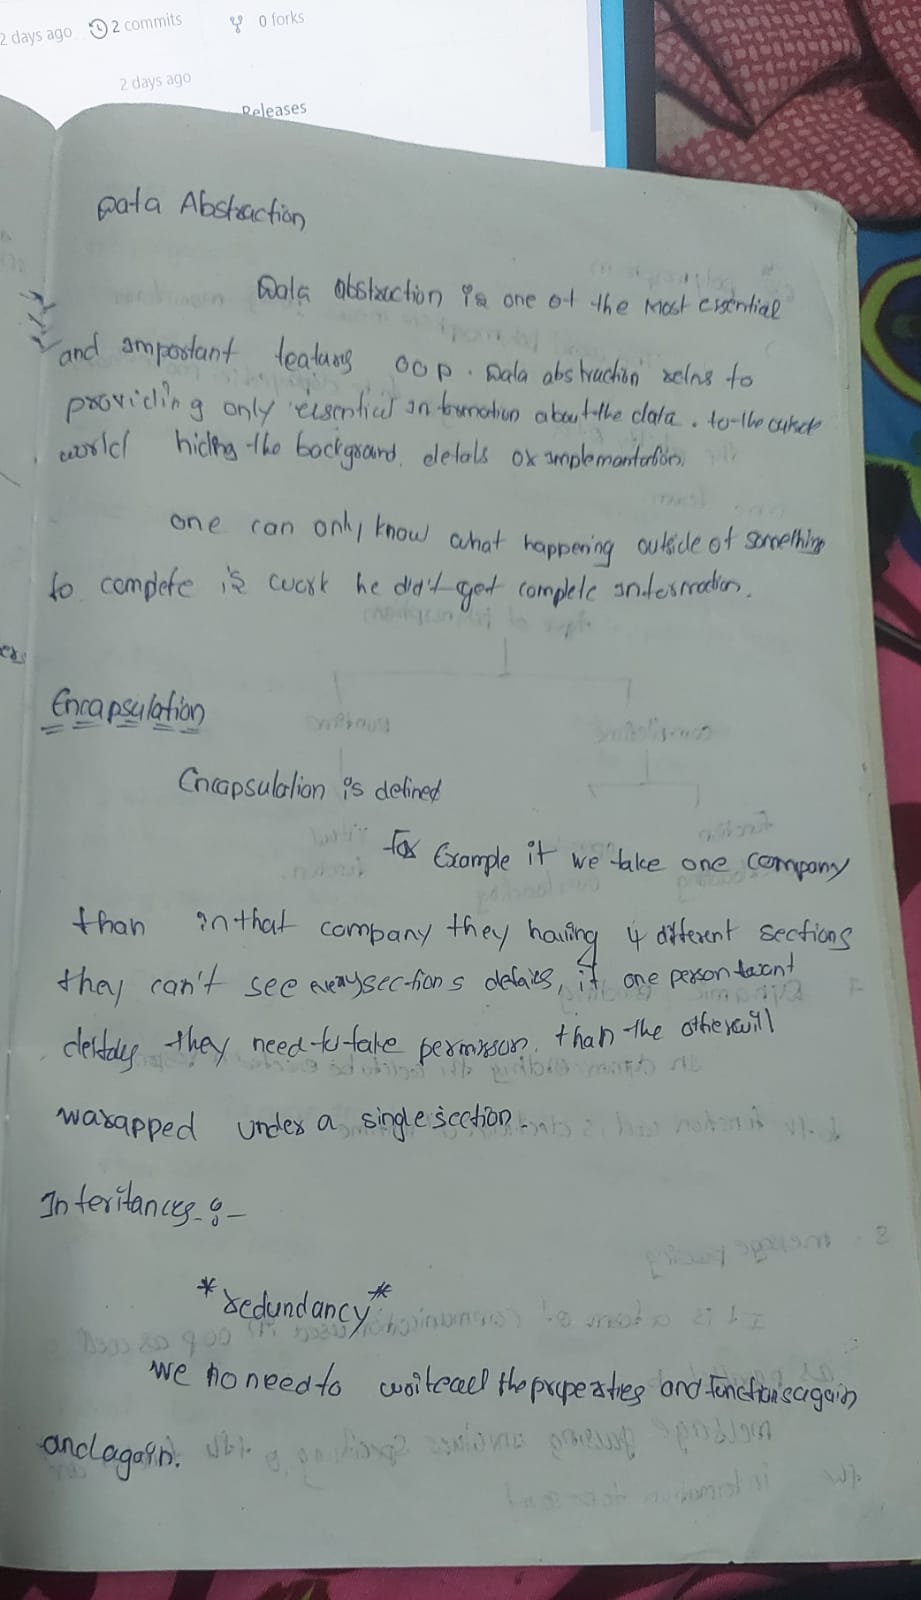 2 days ago 2 commits 0 forks
2 days ago
Releases
Data Abstraction
Data abstraction is one of the most essential
and important features OOP. Data abstraction refers to
providing only essential information about the data. to the outside
world hiding the background details or implementation.
one can only know what happening outside of something
to compete is work he did't get complete information.
Encapsulation
Encapsulation is defined
For Example if we take one company
than in that company they having 4 different sections
they can't see every sections details, if one person want
they need to take permission. than the other will
warapped under a single section.
Interitances :-
*redundancy*
we no need to write all the properties and functions again
and again.